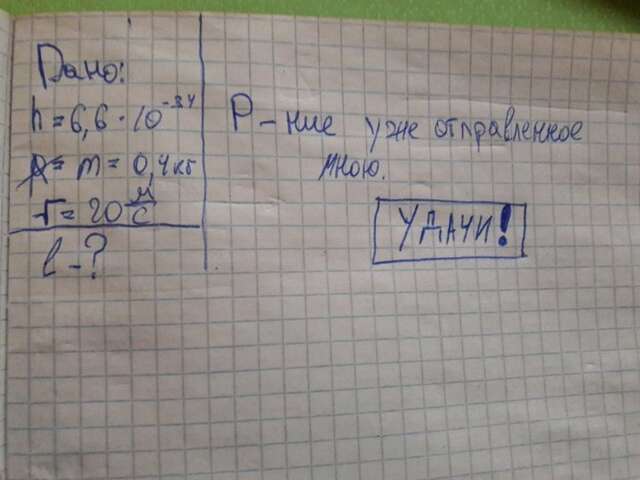 Дано:
h = 6,6 · 10^-34
m = 0,4 кг
v = 20 м/с
l - ?
Р-ние уже отправленное
мною.
УДАЧИ!